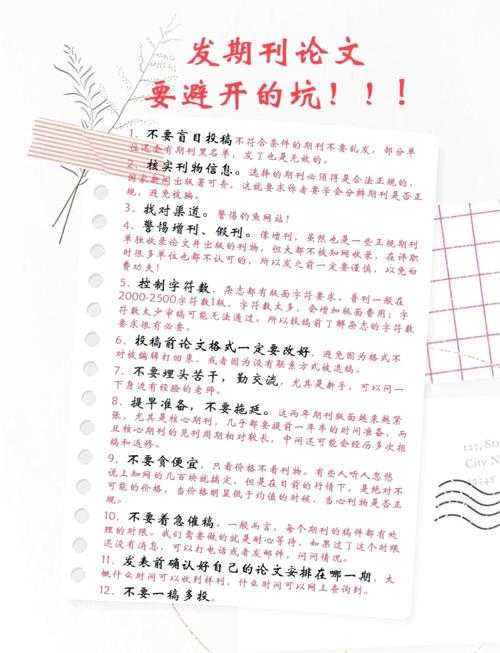 发期刊论文
要避开的坑！！！
1. 不要盲目投稿不符合条件的期刊不要乱发，部分单
位还会有期刊黑名单，发了也是无效的。
2. 核实刊物信息。选择的期刊必须得是合法正规的，
国家新闻出版署可查，这就要求作者要学会分辨期刊是否正
规，避免被骗。
3. 找对渠道。警惕钓鱼网站！
4. 警惕增刊、假刊。像增刊，虽然也是一些正规期刊
单独收录论文件出版的刊物，但大都不被知网收录，在评职
时很多单位也都不认可的，所以发之前一定要谨慎，以免白
费功夫！
5. 控制字符数，杂志都有版面字符要求。普刊一般在
2000-2500字符数1版，字符数太多，会增加版面费用；字
符数太少审稿可能无法通过。所以投稿前了解杂志的字符数
要求很有必要。
6. 投稿前论文格式一定要改好，避免因为格式不
对被编辑打回来，或者因为没有联系方式被退稿。
7. 不要埋头苦干，勤交流，尤其是新手，可以问一
下身边有经验的老师。
8. 提早准备，不要拖延。这两年期刊版面越来越紧
张，尤其是核心期刊，几乎都要提前一年半的时间准备，而
且核心期刊的见刊周期相对较长，中间还可能会经历多次退
稿和返修。
9. 不要贪便宜，只看价格不看刊物。有些人听人忽悠
说上知网的几百块就搞定，但是在目前的行情下，是绝对不
可能的价格，当价格明显低于均值的时候，当心刊物是否正
规。
10. 不要着急催稿。一般而言，每个期刊的稿件都有处
理的时限。我们需要做的就是耐心等待，如果过了这个时限
还没有消息，可以打电话或者发邮件，问问情况。
11. 发表前确认好自己的论文安排在哪一期，大
概什么时间可以收到样刊，什么时间可以网上查询到。
12. 不要一稿多投。
127, Str
City N
12345